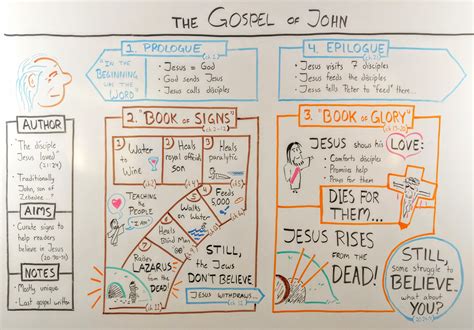 THE GOSPEL OF JOHN
1. PROLOGUE
(ch.1)
"IN THE
BEGINNING
WAS THE
WORD"
• Jesus = God
• God sends Jesus
• Jesus calls disciples
4. EPILOGUE
• Jesus visits 7 disciples
• Jesus feeds the disciples
• Jesus tells Peter to "feed" them...
AUTHOR
• "The disciple
Jesus loved"
(21:24)
• Traditionally
John, son of
Zebedee.
AIMS
• Curate signs to
help readers
believe in Jesus
(20:30-31)
NOTES
• Mostly unique
• Last gospel written
2. "BOOK OF SIGNS"
(ch. 2-12)
1 Water
to
Wine
2 Heals
royal official's
son
3 Heals
paralytic
4 Feeds
5,000
5 Walks on
Water
6 Heals
Blind Man
7 Raises
LAZARUS
from the
DEAD!
TEACHING
PEOPLE
"I AM"
STILL,
the Jews
DON'T BELIEVE.
JESUS WITHDRAWS...
3. "BOOK OF GLORY"
JESUS shows his LOVE:
• Comforts disciples
• Promises help
• Prays for them
DIES FOR
THEM...
JESUS RISES
FROM THE
DEAD!
STILL,
some struggle to
BELIEVE.
What about
YOU?